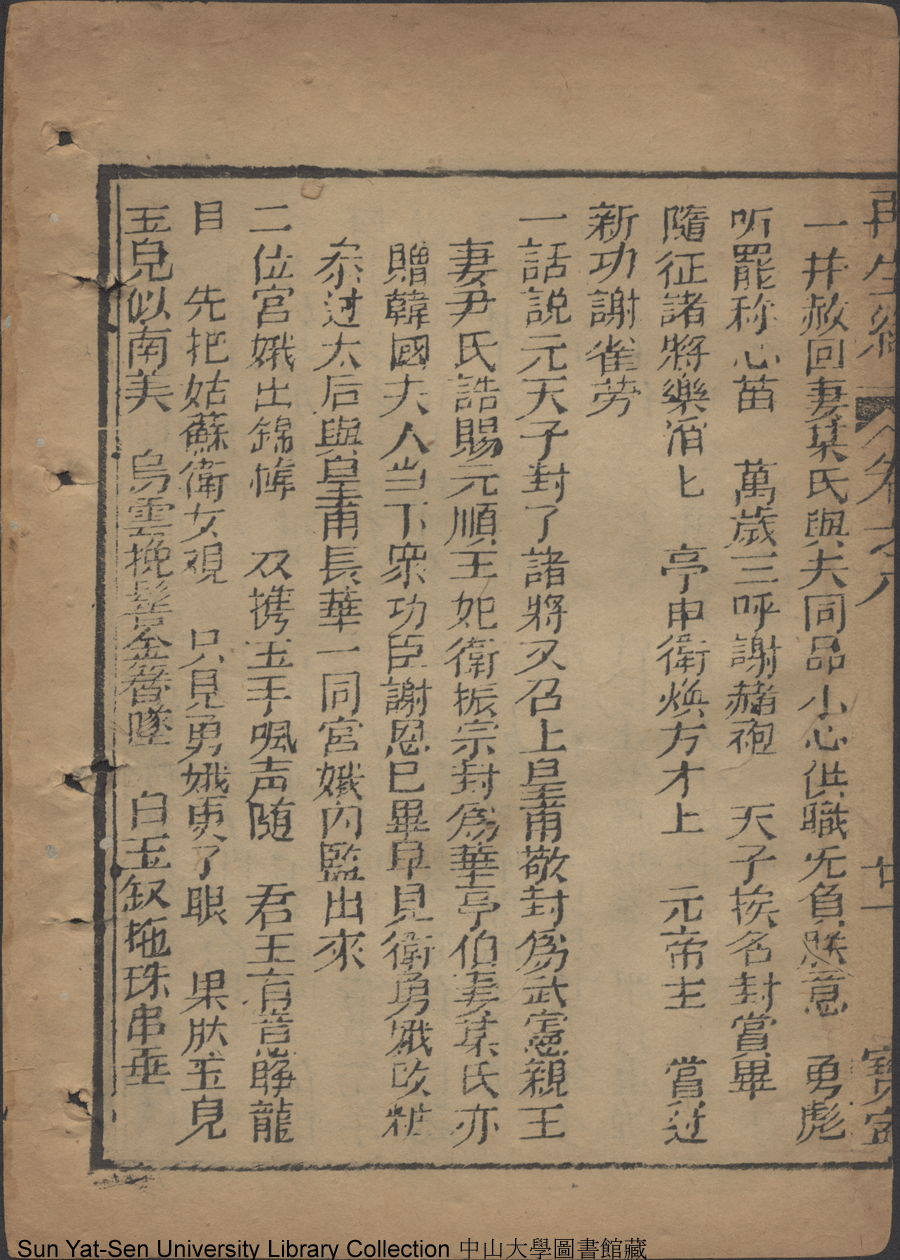 再生緣 卷之八 廿一
一井赦回妻某氏與夫同品小心供職旡負朕意 勇彪
听罷称心苗 萬歲三呼謝赭袍 天子挨名封賞畢
隨征諸將樂滔匕 亭申衛煥方才上 元帝主 當过
新功謝雀劳
一話說元天子封了諸將又召上皇甫敬封為武憲親王
妻尹氏誥賜元順王妃衛振宗封為華亭伯妻某氏亦
贈韓國夫人当下衆功臣謝恩已畢早見衛勇娥改粧
叅过太后與皇甫長華一同宮娥內監出來
二位宮娥出錦幃 双携玉手珮声随 君王有意睁龍
目 先把姑蘇衛女覌 只見勇娥更了眼 果肰玉皃
玉皃似南美 烏雲挽髻金簪墜 白玉釵拖珠串垂
Sun Yat-Sen University Library Collection 中山大學圖書館藏